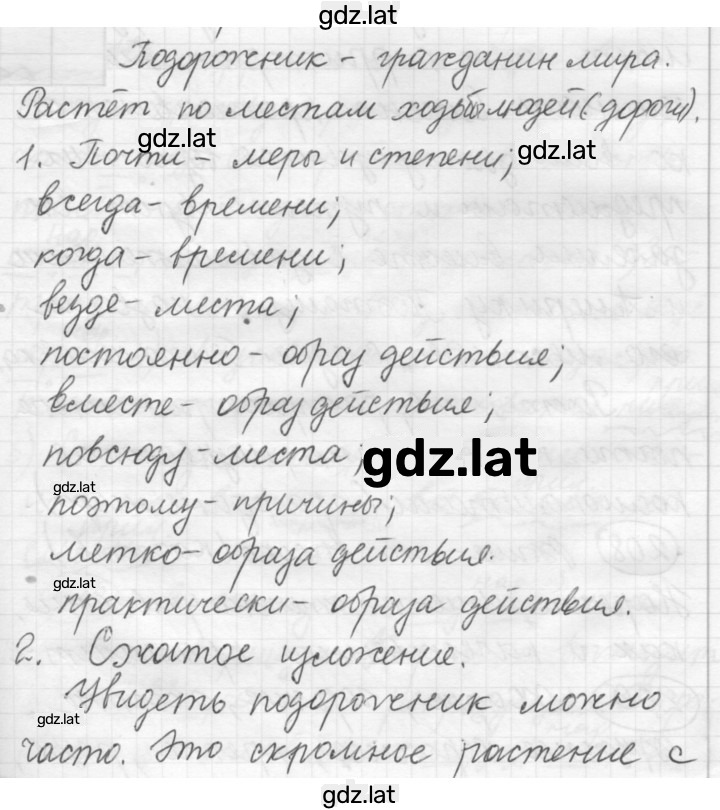 gdz.lat
Подорожник - гражданин мира.
Растёт по местам ходьбы людей (дороги).
gdz.lat
gdz.lat
1. Почти - меры и степени;
всегда - времени;
когда - времени;
везде - места;
постоянно - образ действия;
вместе - образ действия;
повсюду - места;
gdz.lat
gdz.lat
поэтому - причины;
метко - образа действия.
gdz.lat
практически - образа действия.
2. Сжатое изложение.
Увидеть подорожник можно
gdz.lat
часто. Это скромное растение с
gdz.lat